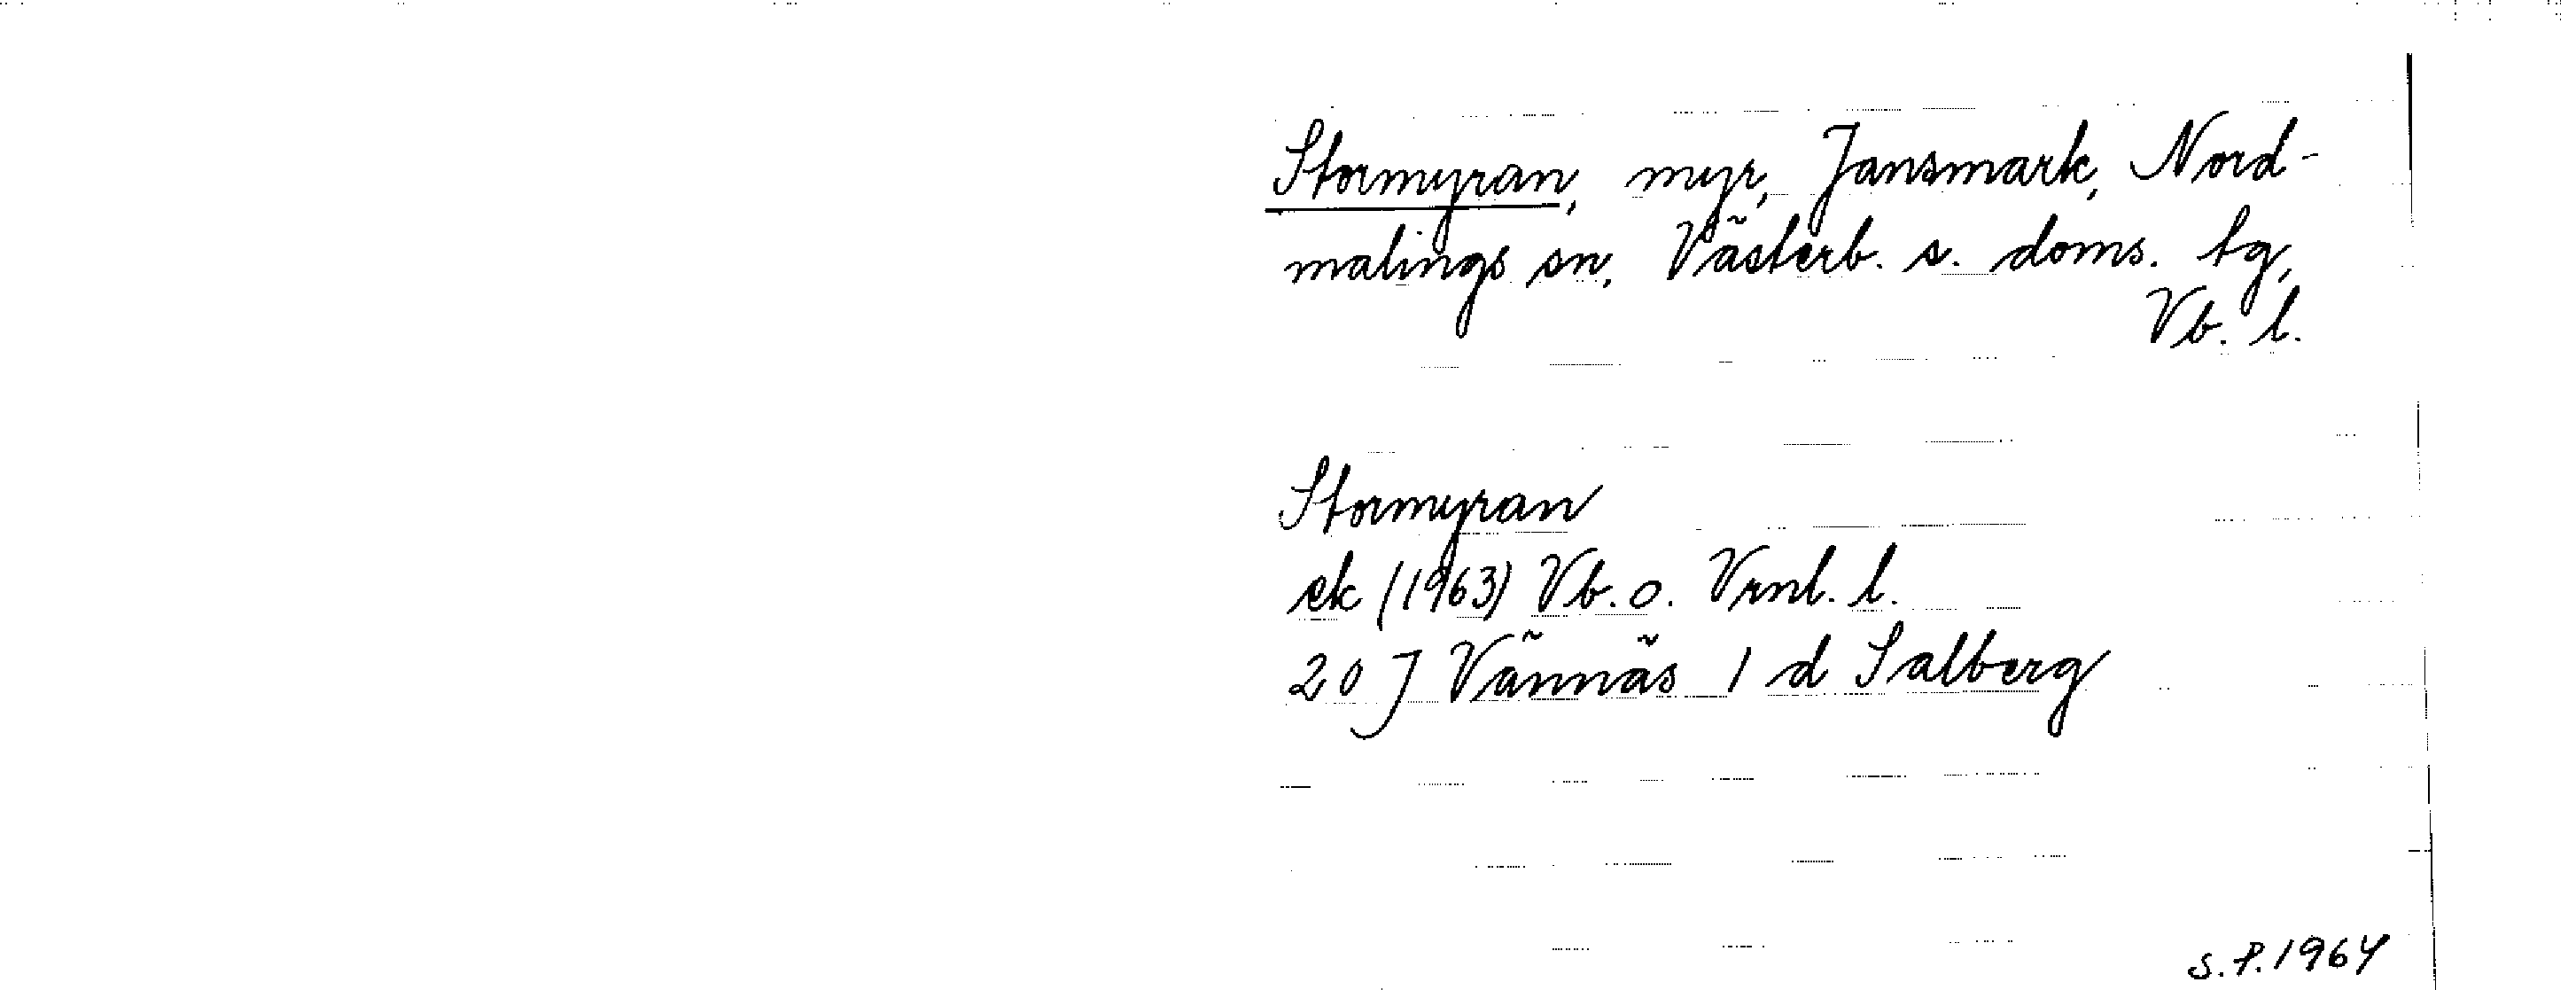 Stormyran, myr, Jansmark, Nord-
malings sn, Västerb. s. doms. tg,
Vb. l.
Stormyran
ek (1963) Vb. o. Vrnl. l.
20 J Vännäs 1 d Salberg
S.P. 1964